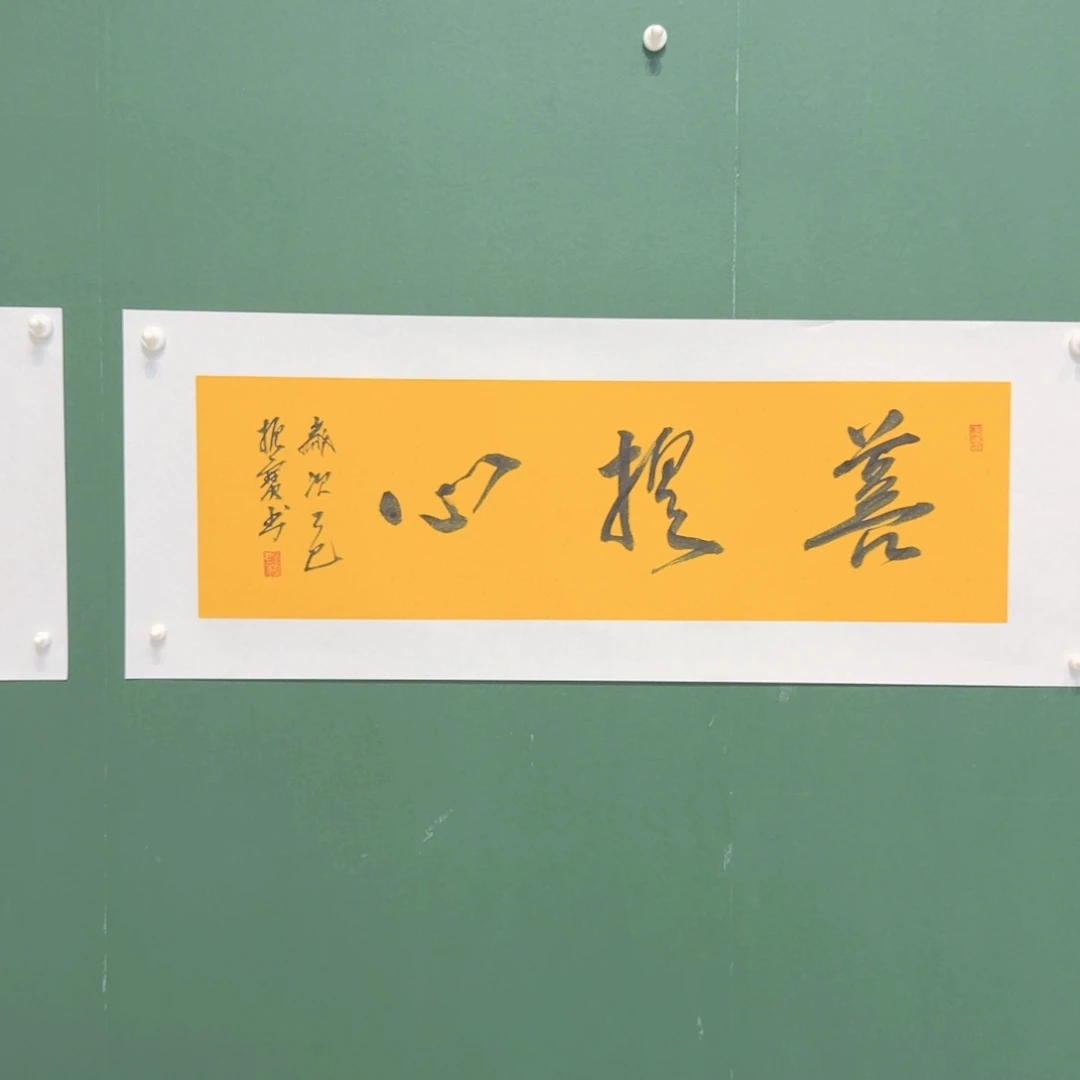 菩提心
歲次乙巳
振寶书